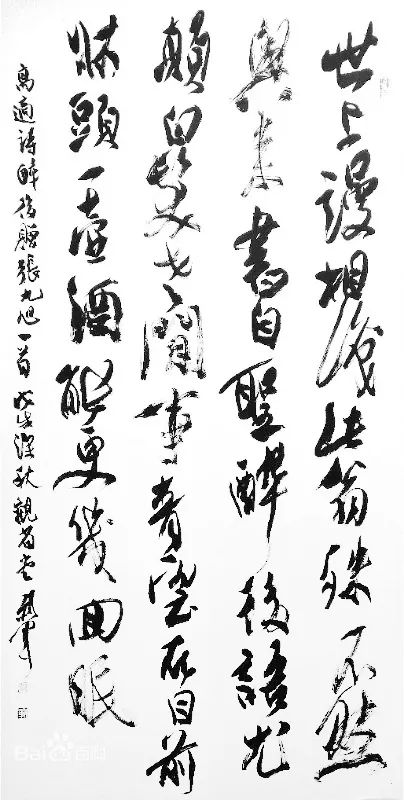 世上謾相識此翁殊不然
興来書自聖醉後語尤
顛白髮老閒事青雲在目前
牀頭一壺酒能更幾回眠
高適詩醉後贈張九旭一首 深秋觀
Bai百科